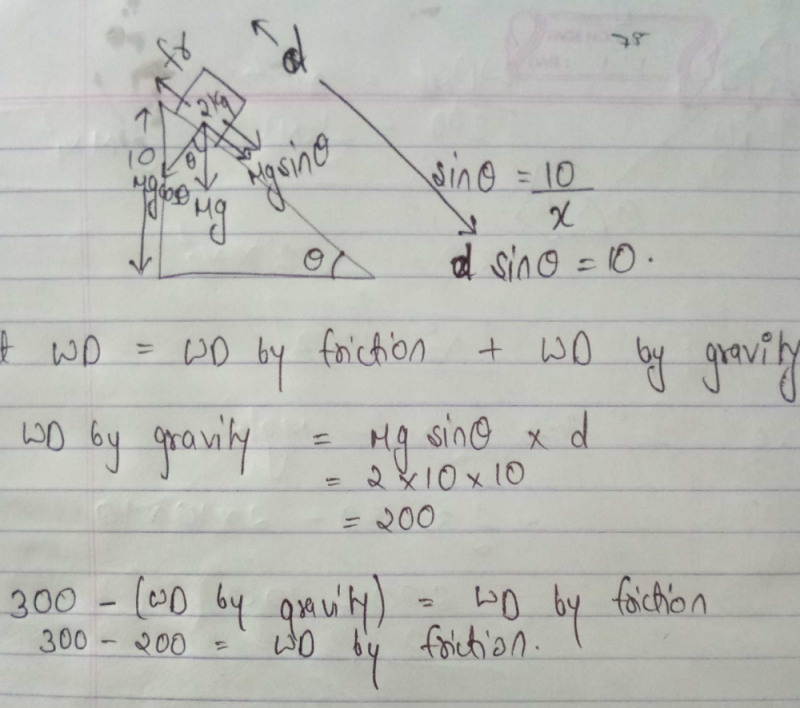 78
fr
d
2kg
10
θ
Mg sinθ
Mg cosθ
Mg
θ
sinθ = 10/x
d sinθ = 10.
t WD = WD by friction + WD by gravity
WD by gravity = Mg sinθ x d
= 2 x 10 x 10
= 200
300 - (WD by gravity) = WD by friction
300 - 200 = WD by friction.